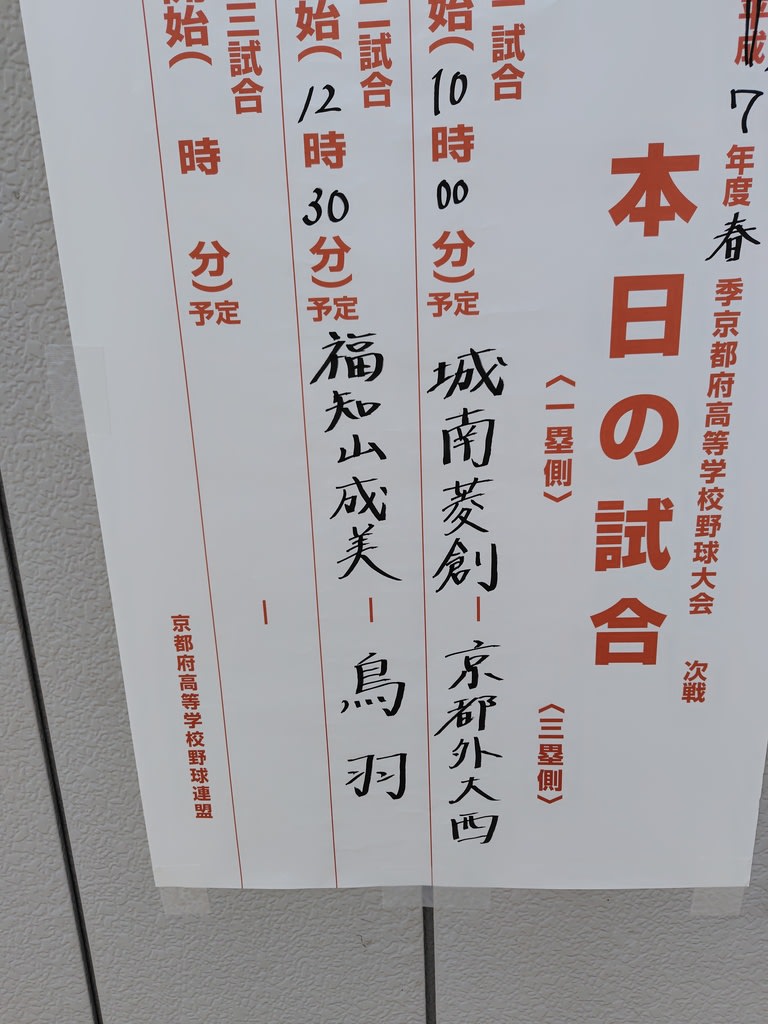 平成7年度春季京都府高等学校野球大会 次戦
本日の試合
〈一塁側〉 〈三塁側〉
一試合
始(10時00分)予定
城南菱創－京都外大西
二試合
始(12時30分)予定
福知山成美－鳥羽
三試合
開始( 時 分)予定
－
京都府高等学校野球連盟